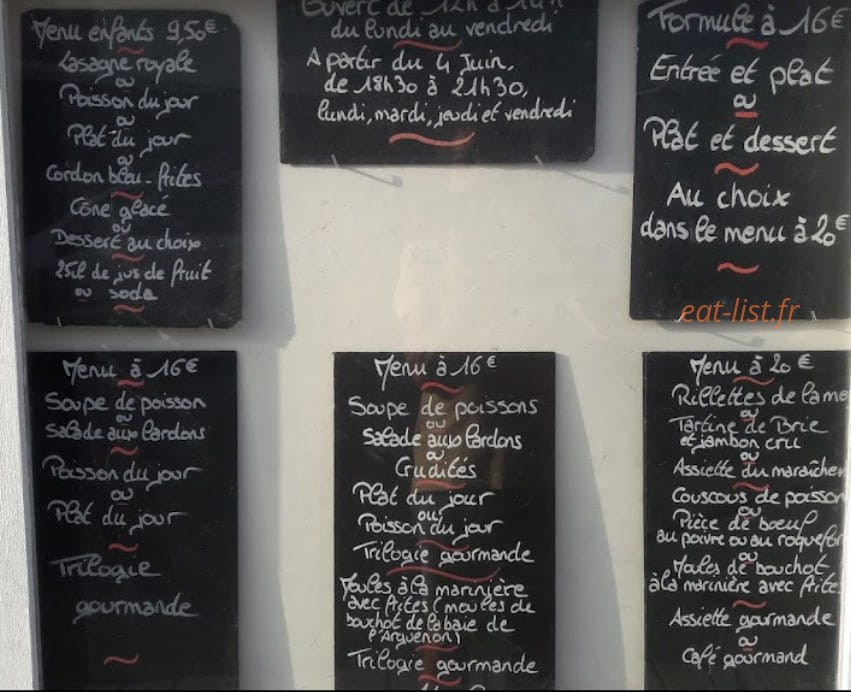 Menu enfants 9,50€
Lasagne royale
ou
Poisson du jour
ou
Plat du jour
ou
Cordon bleu - frites
Cône glacé
ou
Dessert au choix
25cl de jus de fruit
ou soda
Ouvert de 12h à 14h
du lundi au vendredi
A partir du 4 Juin,
de 18h30 à 21h30,
lundi, mardi, jeudi et vendredi
Formule à 16€
Entrée et plat
ou
Plat et dessert
Au choix
dans le menu à 20€
eat-list.fr
Menu à 16€
Soupe de poisson
ou
Salade aux lardons
Poisson du jour
ou
Plat du jour
Trilogie
gourmande
Menu à 16€
Soupe de poissons
ou
Salade aux lardons
ou
Crudités
Plat du jour
ou
Poisson du jour
Trilogie gourmande
Moules à la marinière
avec frites (moules de
bouchot de la baie de
l'Arguenon)
Trilogie gourmande
Menu à 20€
Rillettes de la me
ou
Tartine de Brie
et jambon cru
ou
Assiette du maraîcher
Couscous de poisson
ou
Pièce de boeuf
au poivre ou au roquefor
ou
Moules de bouchot
à la marinière avec frite
Assiette gourmande
ou
Café gourmand